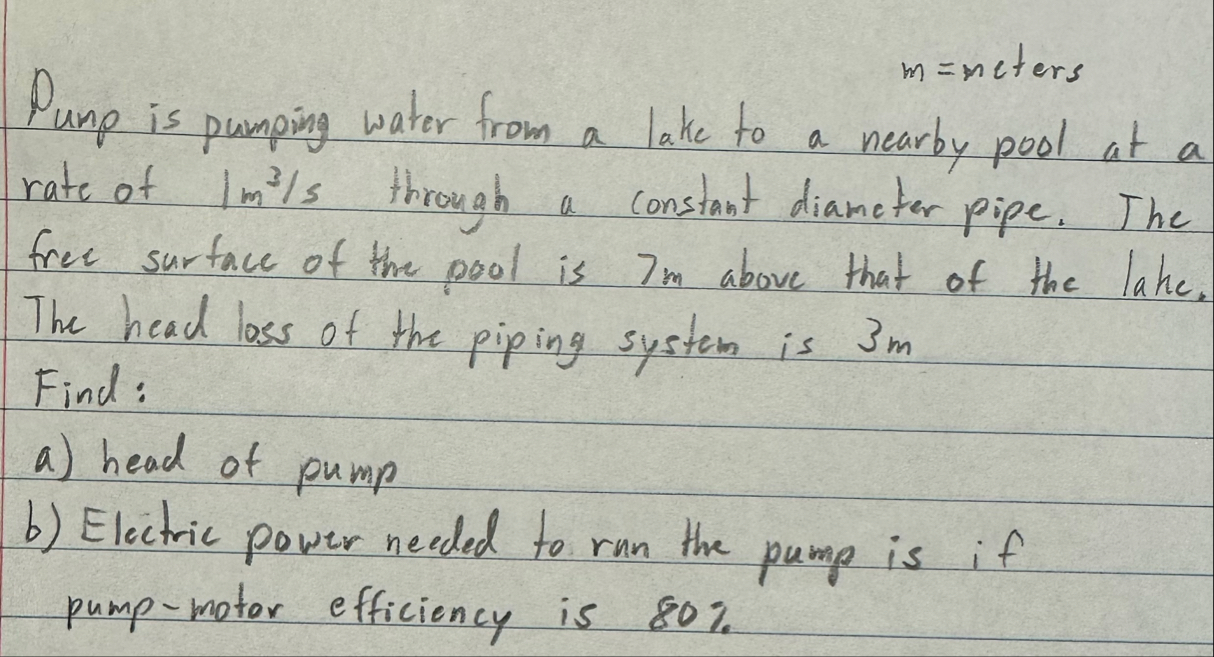 m = meters
Pump is pumping water from a lake to a nearby pool at a
rate of 1m³/s through a constant diameter pipe. The
free surface of the pool is 7m above that of the lake.
The head loss of the piping system is 3m
Find:
a) head of pump
b) Electric power needed to run the pump is if
pump-motor efficiency is 80%